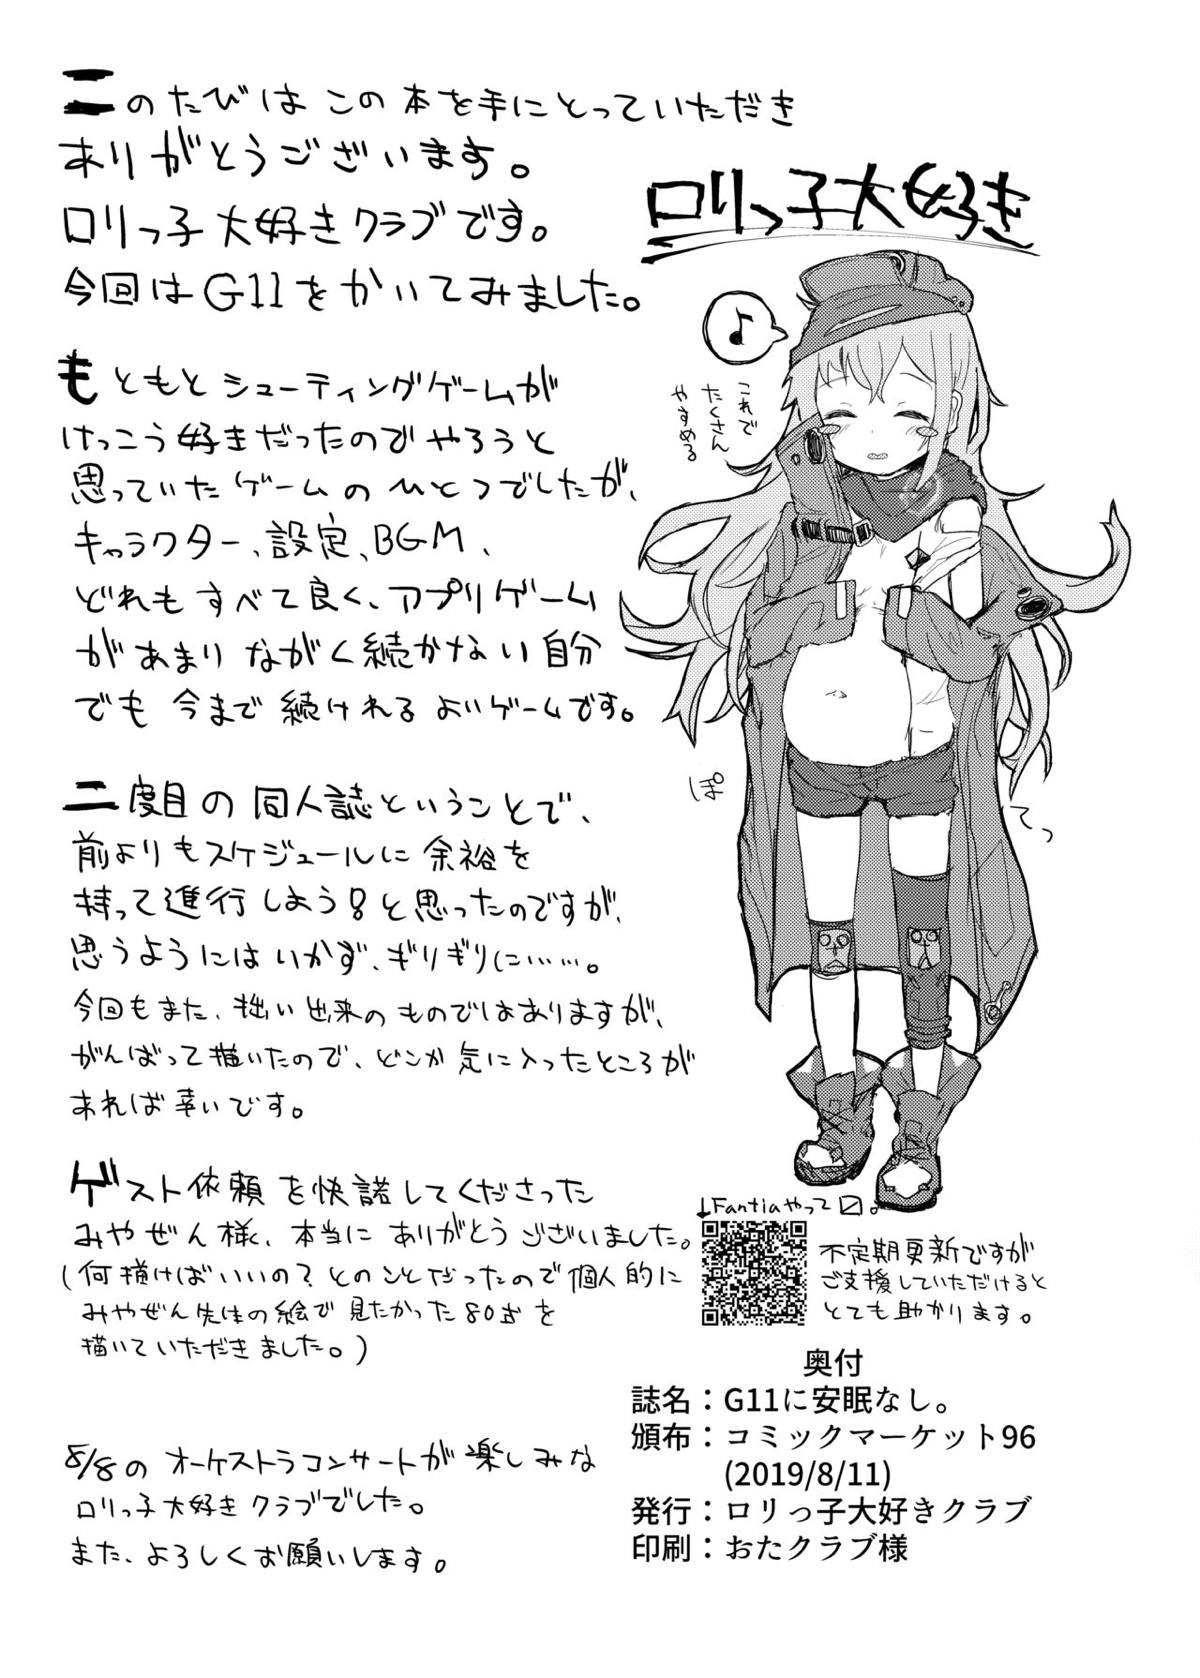 このたびは この本を手にとっていただき
ありがとうございます。
ロリっ子大好きクラブです。
今回はG11をかいてみました。
もともと シューティングゲームが
けっこう好きだったのでやろうと
思っていたゲームのひとつでしたが、
キャラクター、設定、BGM、
どれもすべて良く、アプリゲーム
があまりながく続かない自分
でも今まで続けれるよいゲームです。
二度目の同人誌ということで、
前よりもスケジュールに余裕を
持って進行しよう!と思ったのですが、
思うようにはいかず、ギリギリに……。
今回もまた、拙い出来のものではありますが、
がんばって描いたので、どこか気に入ったところが
あれば幸いです。
ゲスト依頼を快諾してくださった
みやぜん様、本当にありがとうございました。
(何描けばいいの?とのことだったので個人的に
みやぜん先生の絵で見たかった80式を
描いていただきました。)
8/8のオーケストラコンサートが楽しみな
ロリっ子大好きクラブでした。
また、よろしくお願いします。
ロリっ子大好き
♪
これで
たくさん
やすめる
ぽ
てっ
↓Fantiaやって〼。
不定期更新ですが
ご支援していただけると
とても助かります。
奥付
誌名:G11に安眠なし。
頒布:コミックマーケット96
(2019/8/11)
発行:ロリっ子大好きクラブ
印刷:おたクラブ様